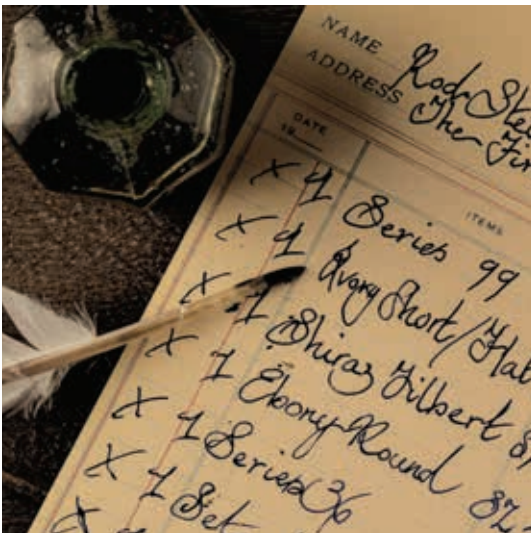 NAME Rod Ste
ADDRESS The Fir
DATE
19
ITEMS
x 1 Series 99
x 1 Ivory Short/Flat
x 1 Shiraz Filbert
x 1 Ebony Round
x 1 Series 36
x 1 Set
x